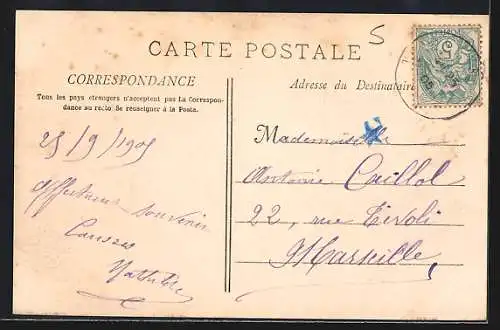 5
CARTE POSTALE
CORRESPONDANCE
Tous les pays étrangers n'acceptent pas la Correspon-
dance au recto. Se renseigner à la Poste.
Adresse du Destinataire
25/9/1905
souvenir
Mathilde
Mademoiselle
Antonie Caillol
22, rue Tivoli
Marseille,